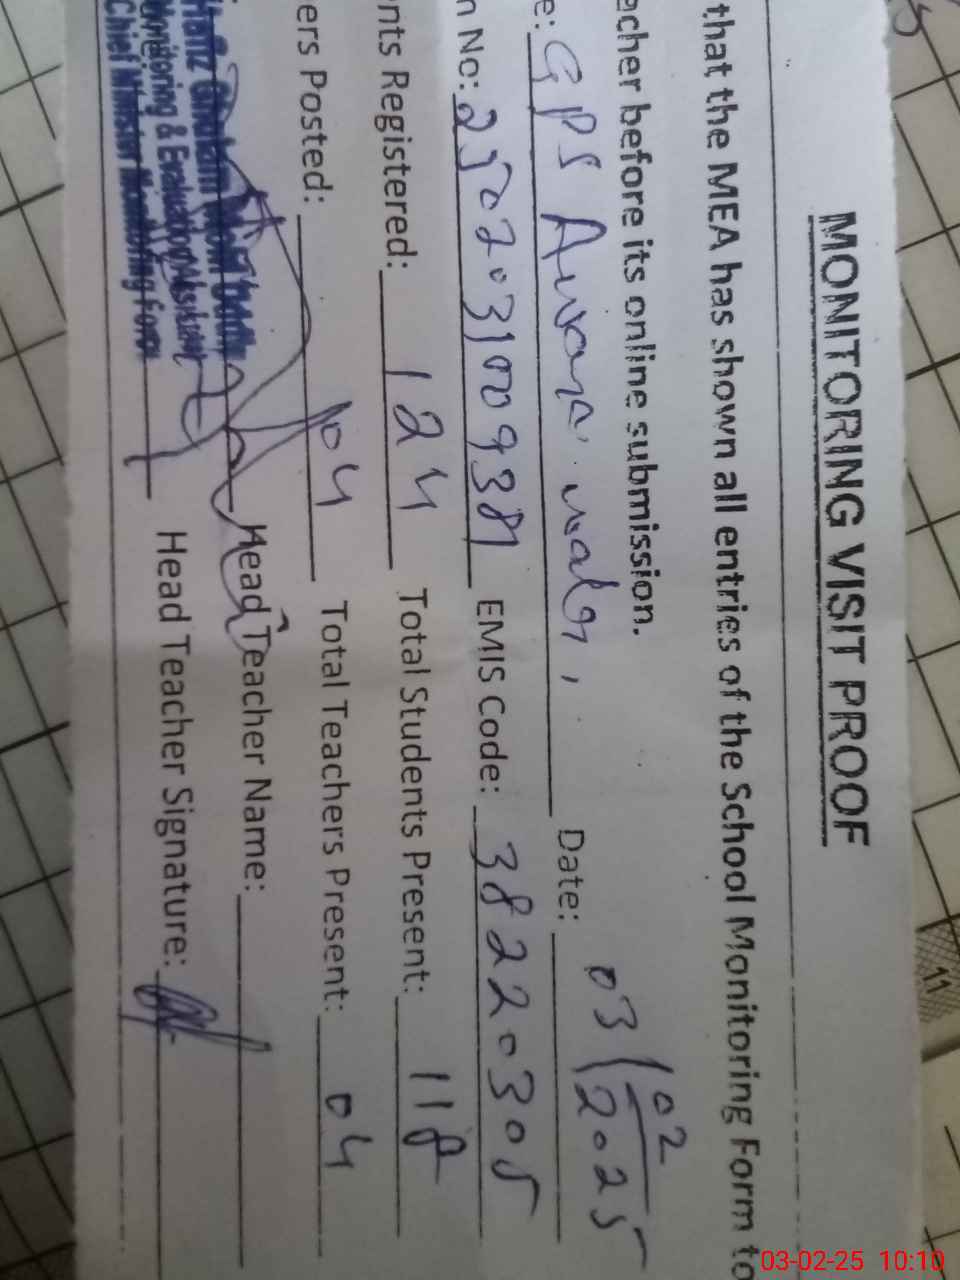 MONITORING VISIT PROOF
that the MEA has shown all entries of the School Monitoring Form to
echer before its online submission.
e: GPS Date: 03/02/2025
n No: EMIS Code: 38220305
nts Registered: 124 Total Students Present: 118
ers Posted: 04 Total Teachers Present: 04
Head Teacher Name:
Head Teacher Signature:
Monitoring & Evaluation Assistant
Chief Minister Monitoring Force
11
03-02-25 10:10